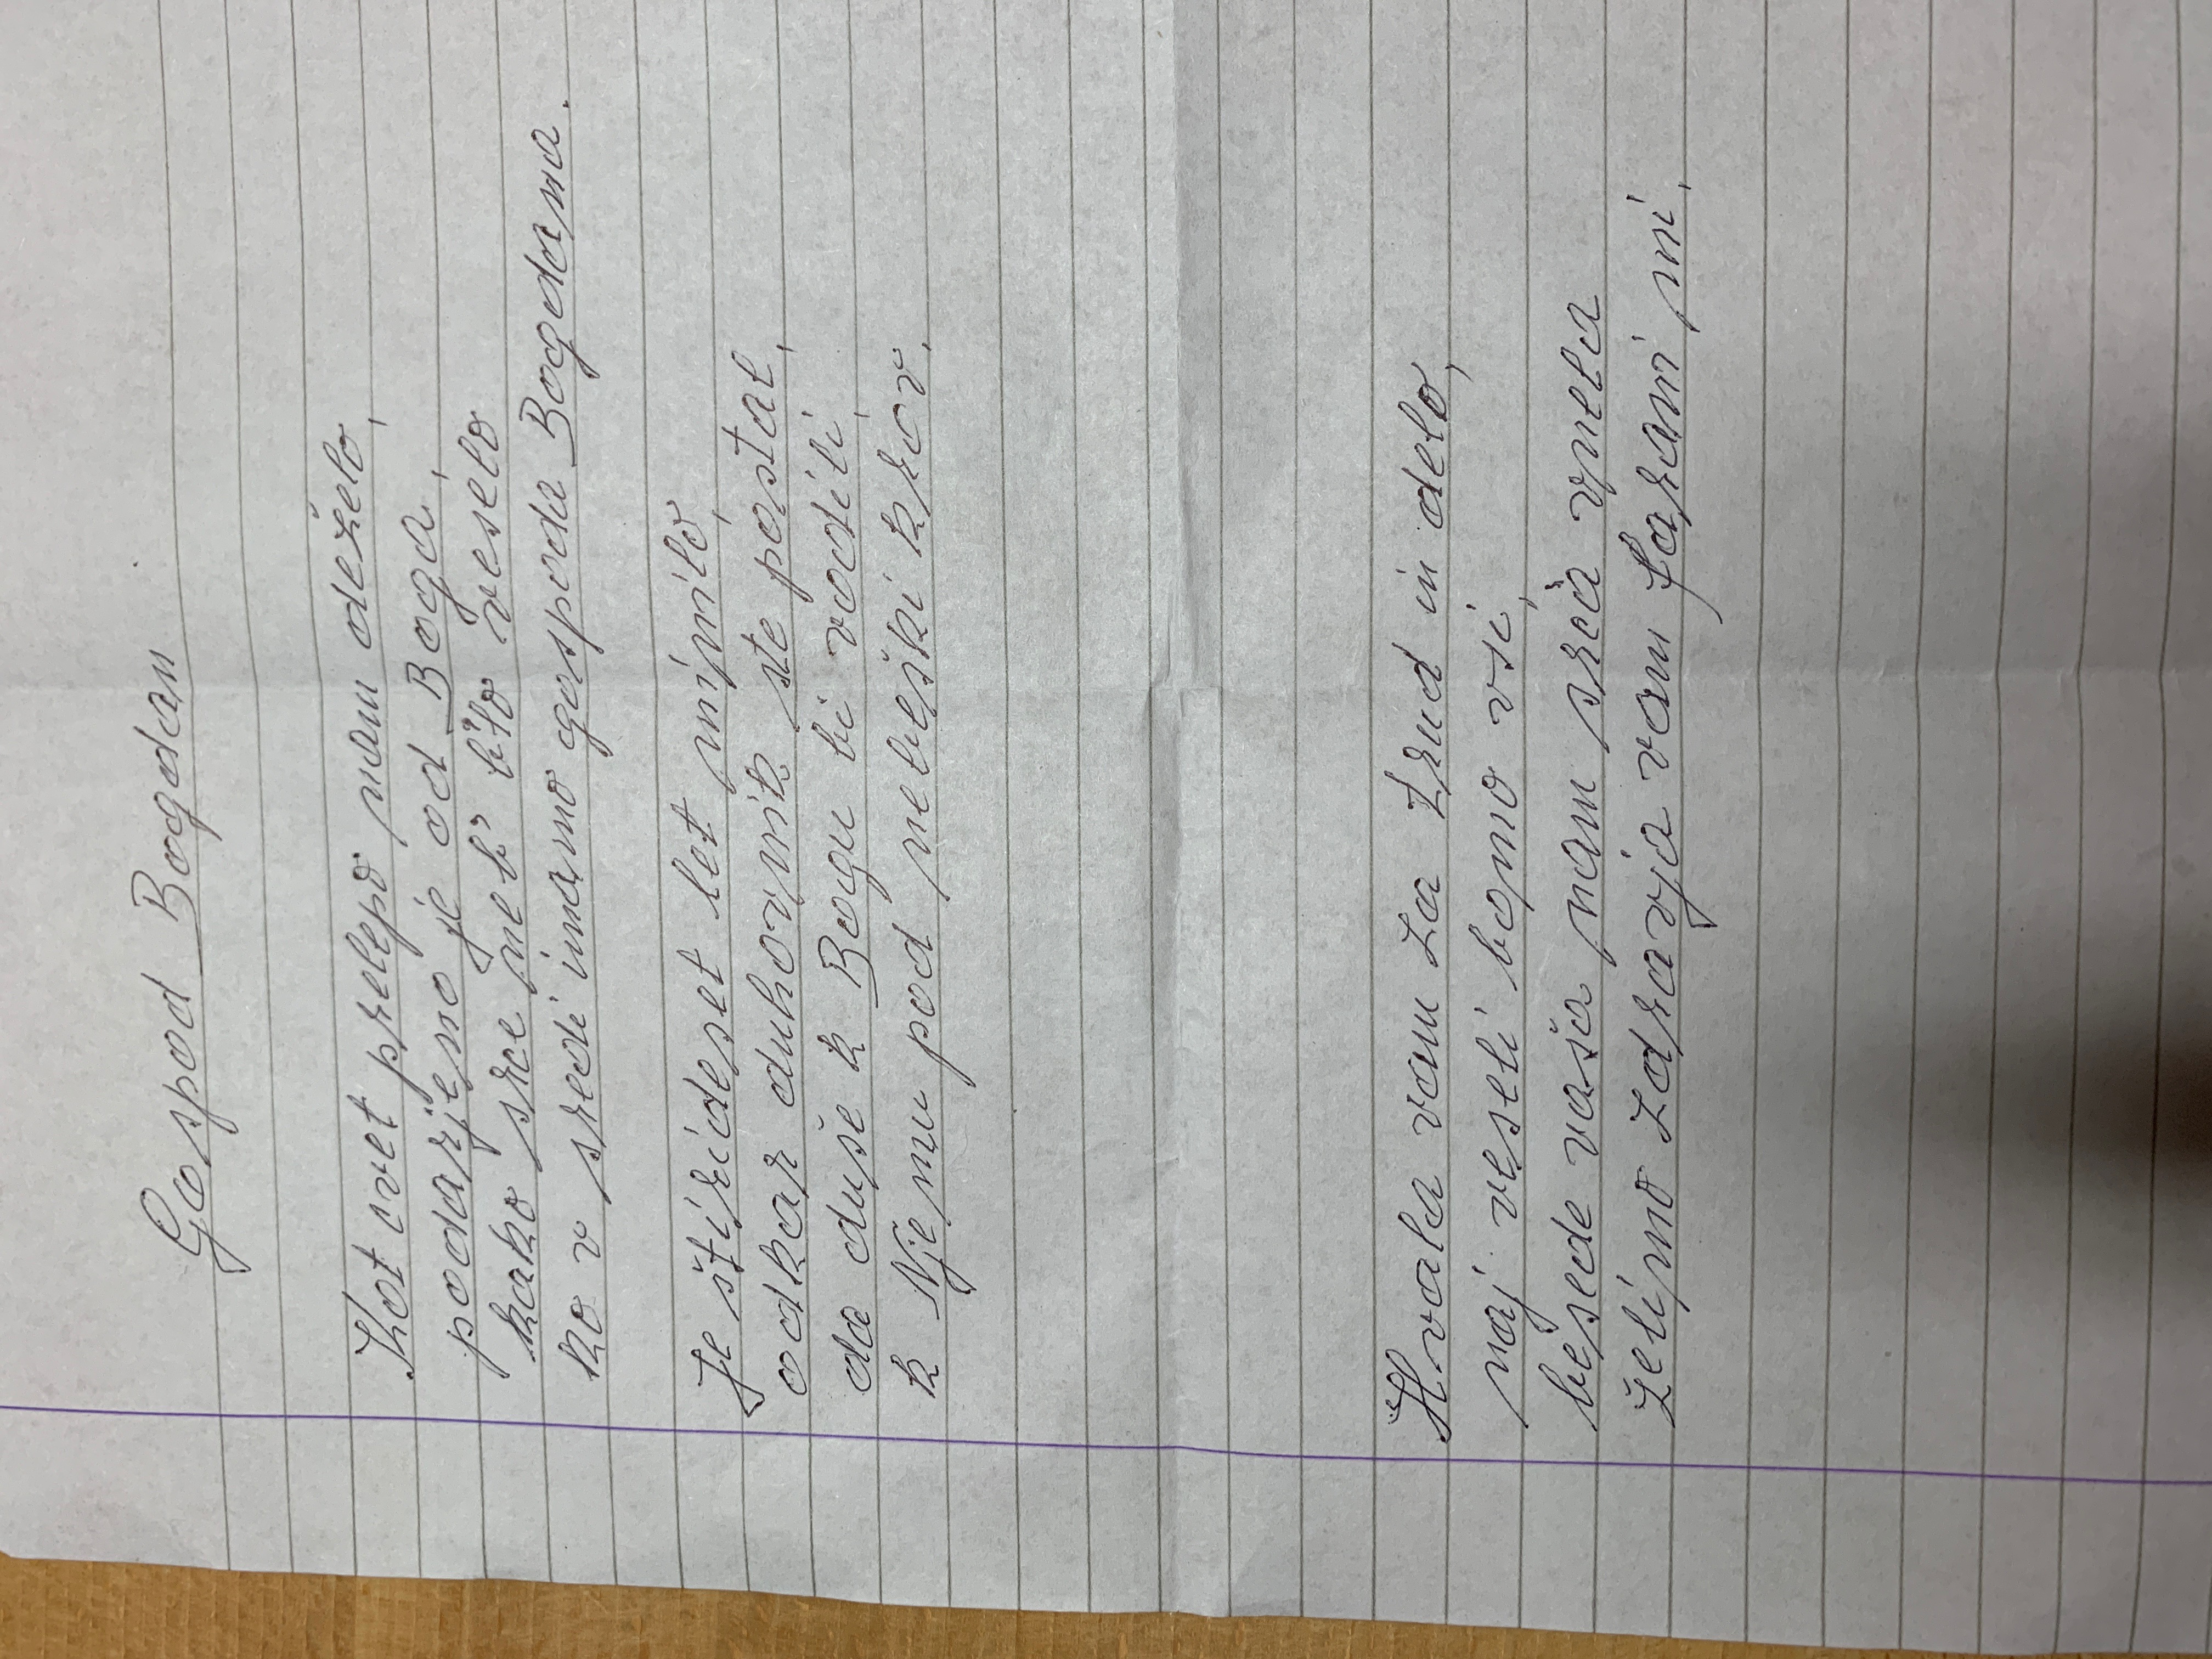 Gospod Bogdan
Kot cvet prelepo nam odeželo,
podarjeno je od Boga,
kako srce nebi bilo veselo
ko v sredi imamo gospoda Bogdana.
Je štirideset let minilo,
odkar duhovnik ste postal,
da duše k Bogu bi vodili,
k Njemu pod nebeški krov.
Hvala vam za trud in delo,
naj veseli bomo vsi,
besede vaša nam srca vnela
želimo zdravja vam farani mi.